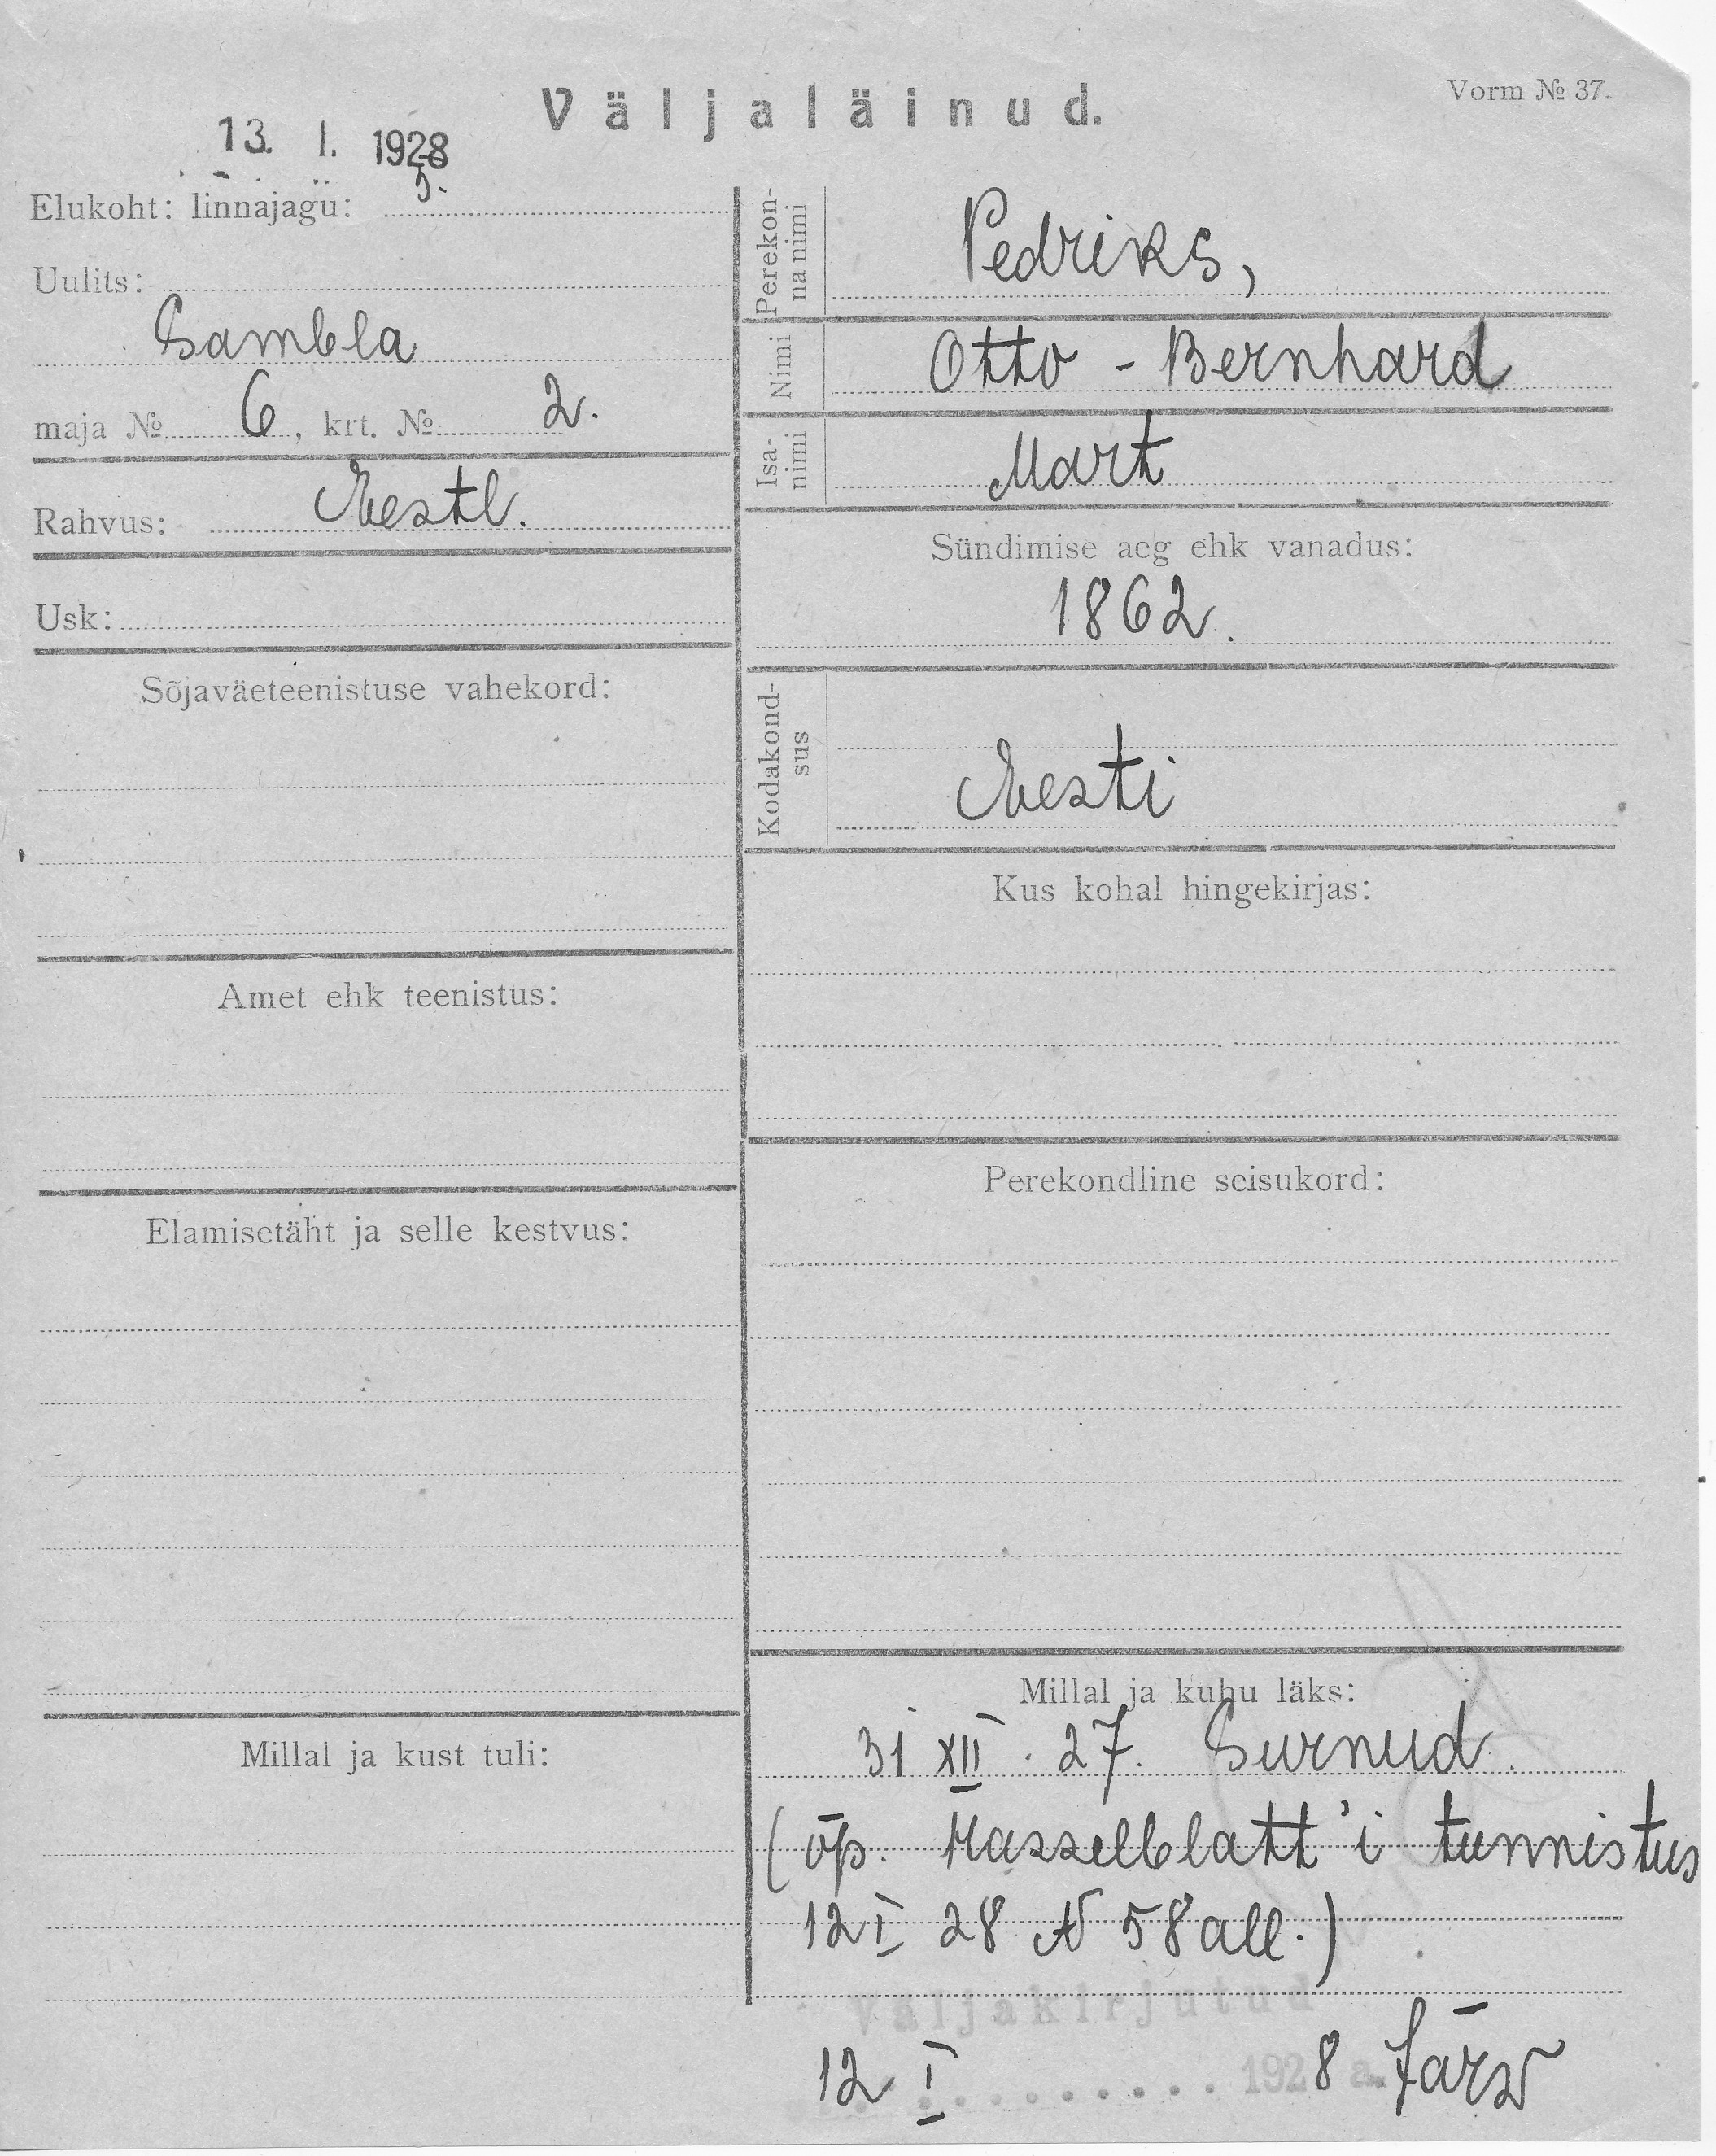 Väljaläinud.
Vorm № 37.
13. I. 1928
Elukoht: linnajagu: 5.
Uulits:
Sambla
maja № 6, krt. № 2.
Rahvus: Eestl.
Usk:
Sõjaväeteenistuse vahekord:
Amet ehk teenistus:
Elamisetäht ja selle kestvus:
Millal ja kust tuli:
Perekon-
na nimi
Pedriks,
Nimi Otto - Bernhard
Isa-
nimi
Mart
Sündimise aeg ehk vanadus:
1862.
Kodakond-
sus
Eesti
Kus kohal hingekirjas:
Perekondline seisukord:
Millal ja kuhu läks:
31 XII. 27. Surnud.
(õp. Hasselblatt'i tunnistus
12 I 28 N 58 all.)
Väljakirjutud
12 I 1928 a. Järv